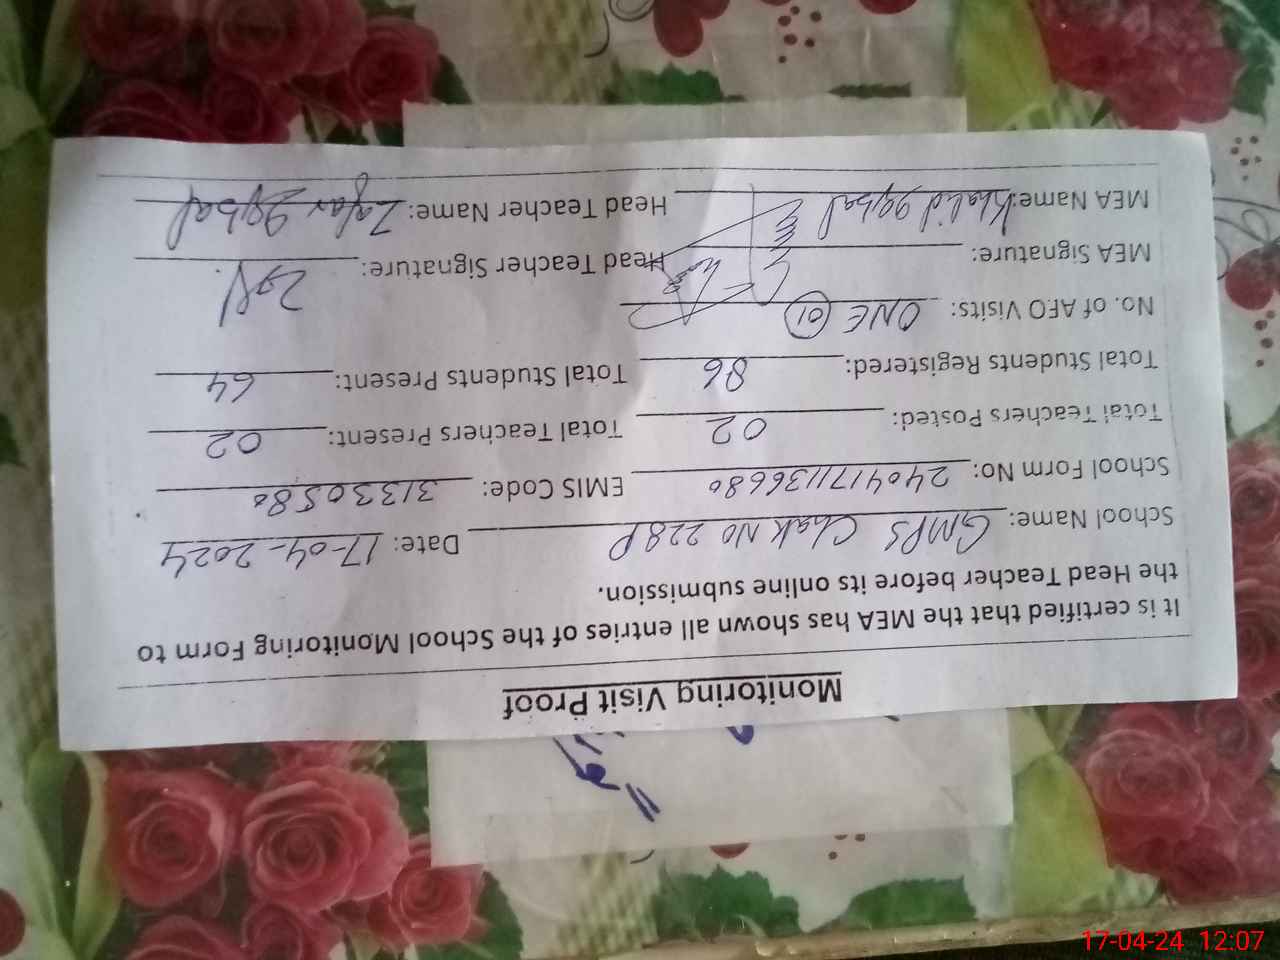 Monitoring Visit Proof
It is certified that the MEA has shown all entries of the School Monitoring Form to
the Head Teacher before its online submission.
School Name: GMPS Chak No 228P Date: 17-04-2024
School Form No: 2404171136680 EMIS Code: 31330580
Total Teachers Posted: 02 Total Teachers Present: 02
Total Students Registered: 86 Total Students Present: 64
No. of AFO Visits: ONE 01
MEA Signature: Head Teacher Signature:
MEA Name: Khalid Iqbal Head Teacher Name: Zafar Iqbal
17-04-24 12:07